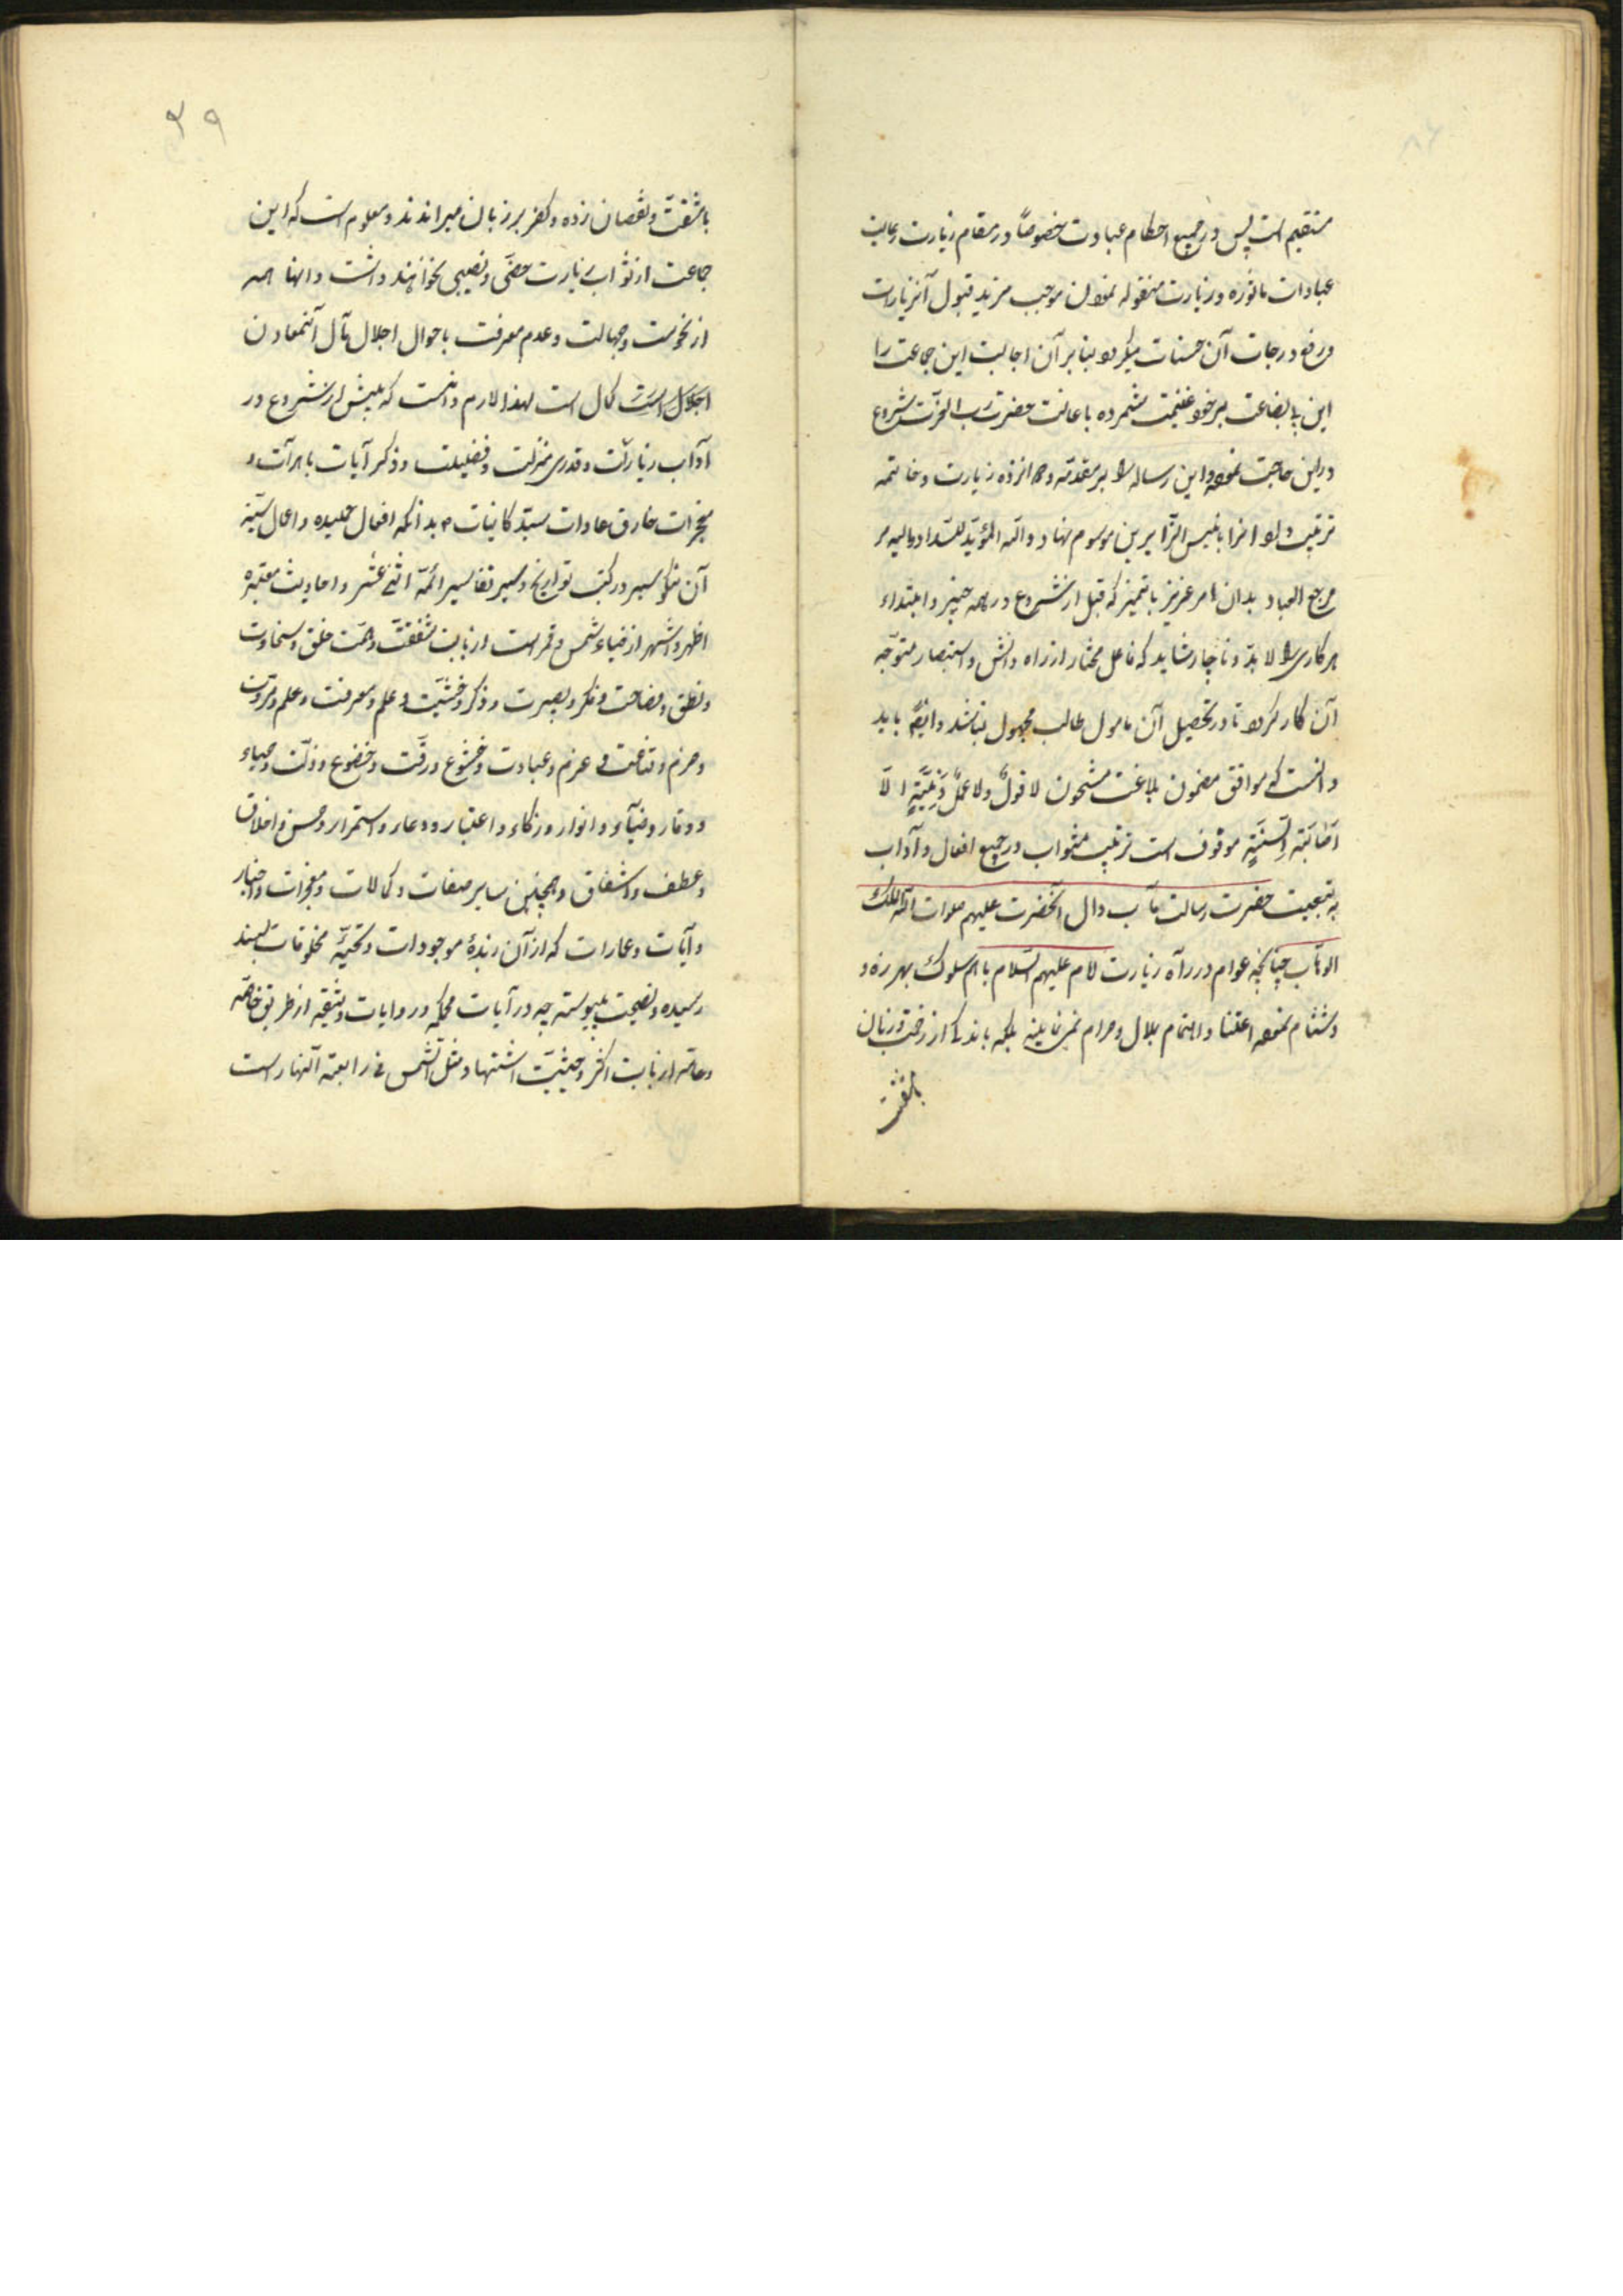 مستقیم است پس در جمیع احکام عبادت خصوصاً در مقام زیارت رعایت
عبادات ماثوره و زیارت منقوله نمودن موجب مزید قبول آنزیارات
و رفع درجات آن حسنات میگردد بنا بر آن اجابت این جماعت را
این بضاعت بر خود غنیمت شمرده باعانت حضرت رب العزّت شروع
درین حاجت نموده و این رساله را بر مقدمه و دوانزده زیارت و خاتمه
ترتیب داد و انرا بانیس الزّایرین موسوم نهاد و اللّه المؤیّد للسّداد و الیه
مرجع العباد بدان امر عزیز باتمیز که قبل از شروع در همه چیز و ابتداء
هر کاری را لا بدّ و ناچار شاید که فاعل مختار از راه دانش و استبصار متوجّه
آن کار گردد تا در تحصیل آن مامول طالب مجهول نباشد و ایضاً باید
دانست که موافق مضمون بلاغت مشحون لا قولٌ ولا عملٌ و نیّةٍ الّا
اصابة السنّةٍ موقوف است ترتیب مثواب در جمیع افعال و آداب
به تبعیت حضرت رسالت مآب و ال انحضرت علیهم صلوات اللّه الملک
الوهّاب چنانچه عوام در راه زیارت امام علیهم السّلام با هم سلوک بهرزه و
دشنام نموده اعتنا و اهتمام بلال و حرام نمی نمایند بلکه باندکی از زخمت و زیان
بامشقت
٣٩
بامشقتّ و نقصان زده و کفر بر زبان میرانند و معلوم است که این
جماعت از ثواب زیارت حضیّ و نصیبی نخواهند داشت و انها همه
از نخوست و جهالت و عدم معرفت باحوال اجلال مآل آنمعادن
اجلال است کمال است لهذا لازم دانست که پیش از شروع در
آداب زیارات و قدری منزلت و فضیلت و ذکر آیات باهرآت و
معجزات خارق عادات سیّد کاینات م بدانکه افعال حمیده و اعمال سنّیه
آن نیکو سیر در کتب تواریخ و سیر تفاسیر ائمّه اثنی عشر و احادیث معتبره
اظهر و اشهر از ضیاء شمس و قمر است از بابت شفقّت و همّت خلق و سخاوت
و نطق و فصاحت و فکر و بصیرت و ذکر و خشیّت و علم و معرفت و علم و مروّت
و حزم و قناعت و عزم و عبادت و خشوع و رقّت و خضوع و ذلّت و حیاء
و وقار و ضیآء و انوار و زکاء و اعتبار و دعار و استمرار و حسن و اخلاق
و عطف و اشفاق و همچنین سایر صفات و کمالات و معجزات و اخبار
و آیات و عمارات که از آن زبدهٔ موجودات و تحیّه مخلوقات بسند
رسیده و نصیحت پیوسته چه در آیات محکمه و روایات وثیقه از طریق خاصّه
و عامّه از بابت اکثر و حیثیّت اشتهاد مثل الشّمس فی رابعة النّهار است